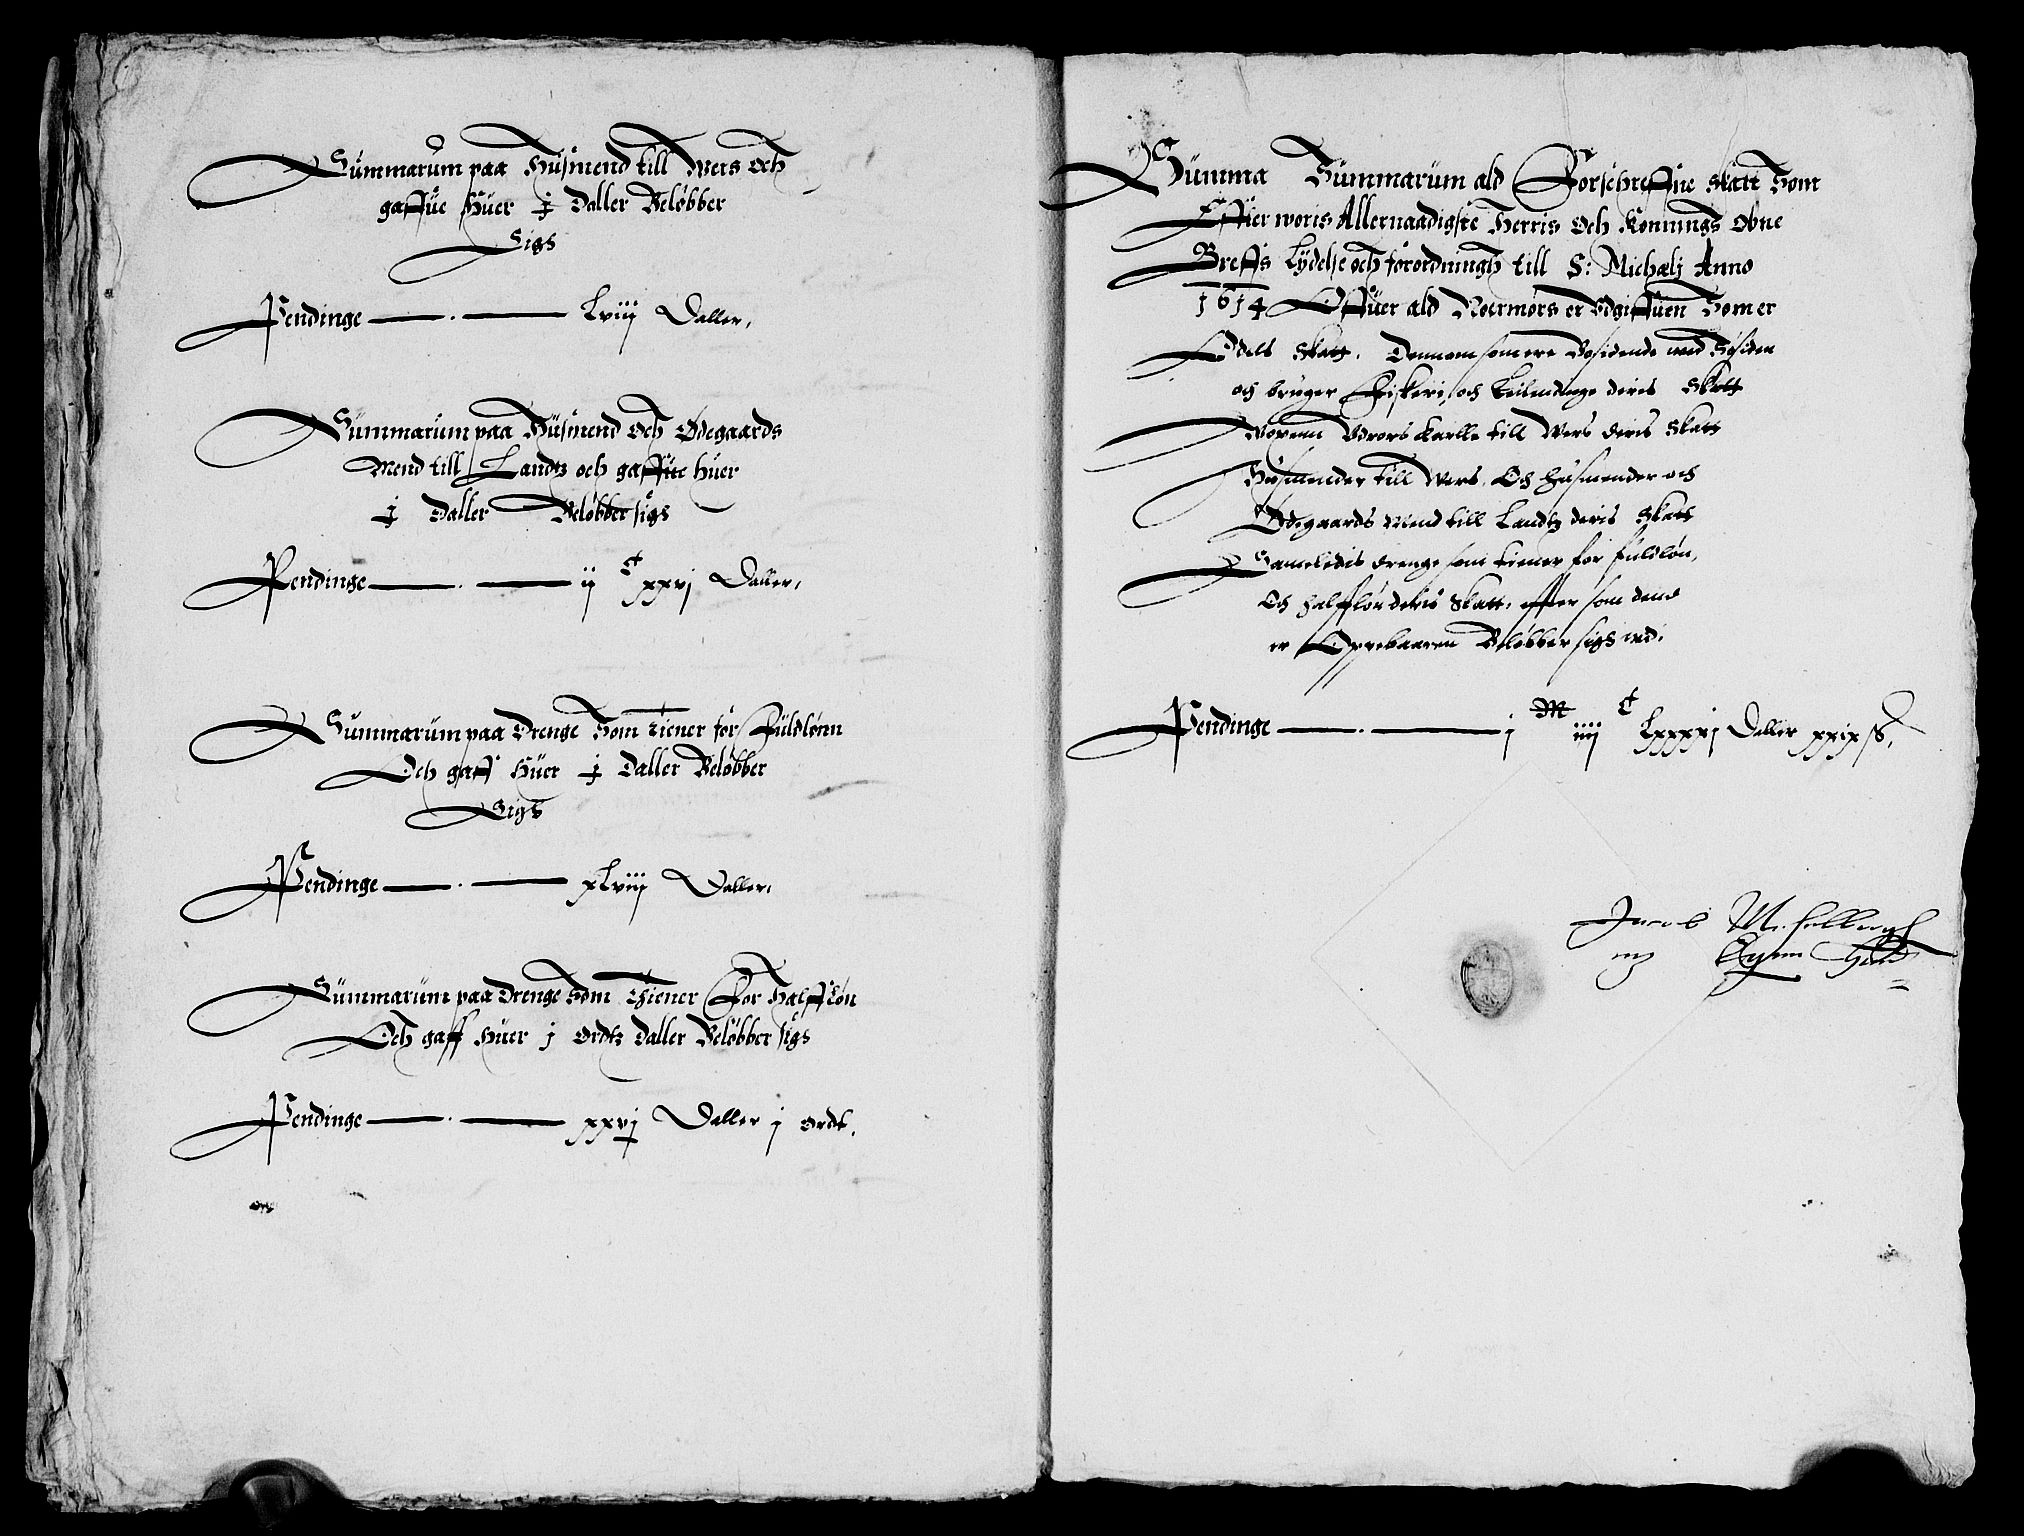 Summarum paa Husmend till Wers Och
gaffue Huer j Daller Beløbber
Sigs
Pendinge — . — Lviij Daller,
Summarum paa Husmend Och Ødegaards
Mend till Landtz och gaffue huer
j Daller Beløbber sigs
Pendinge — . — ij C xxvj Daller,
Summarum paa Drenge Som tiener for Fuldlønn
Och gaff Huer j Daller Beløbber
Sigs
Pendinge — . — xLviij Daller,
Summarum paa Drenge Som Thiener For Halffløn
Och gaff Huer j Ordtz Daller Beløbber sigs
Pendinge — . — xxvj Daller j Ordt,
Summa Summarum ald Forschreffne Skatt Som
Effter woris Allernaadigste Herris Och Konnings Obne
Breffs Lydelse och forordningh till S: Michælj Anno
1614 Offuer ald Noermørs er Vdgiffuen Som er
Odels Skatt, Dennom som ere Bosidende wed Søsiden
och bruger Fiskeri, och Leilendinge deris Skatt
Borenn Vdrors Karlle till Wers deris Skatt
Husmender till Wers, Och husmender och
Ødegaards Mend till Landtz deris Skatt
Sameledis drenge som tiener for fuldløn,
Och halffløn deris Skatt, effter som dend
er Oppebaaren Beløbber sigs udj,
Pendinge — . — j M iiij C Lxxxxj Daller xxix ſs,
Jacob M.
Egenn Hand